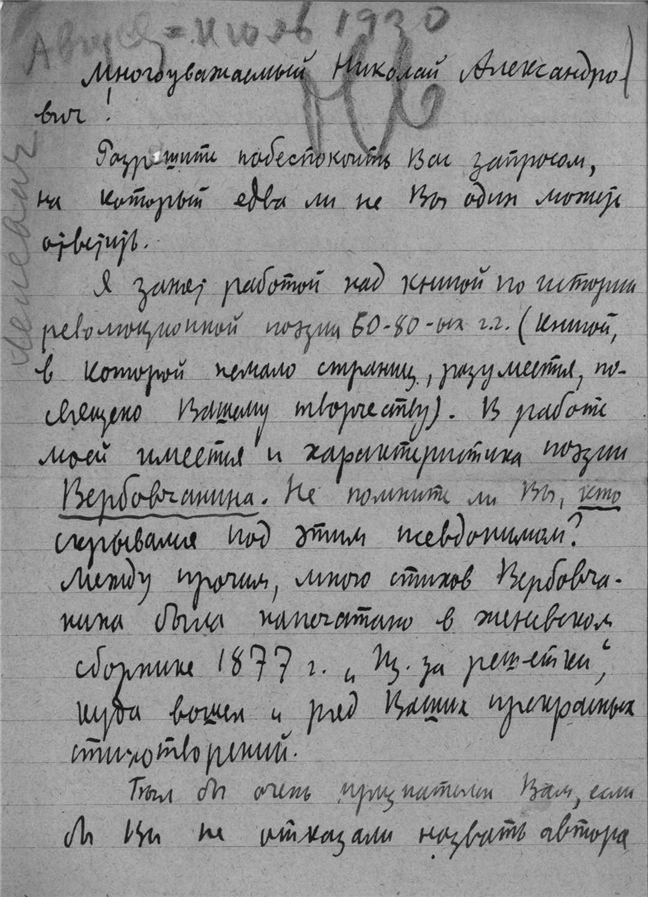 Август = июль 1930
Многоуважаемый Николай Александро-
вич!
Разрешите побеспокоить Вас запросом,
на который едва ли не Вы один можете
ответить.
Я занят работой над книгой по истории
революционной поэзии 60-80-ых г.г. (книгой,
в которой немало страниц, разумеется, по-
священо Вашему творчеству). В работе
моей имеется и характеристика поэзии
Вербовчанина. Не помните ли Вы, кто
скрывался под этим псевдонимом?
Между прочим, много стихов Вербовча-
нина было напечатано в женевском
сборнике 1877 г. „Из-за решетки“,
куда вошел и ряд Ваших прекрасных
стихотворений.
Был бы очень признателен Вам, если
бы Вы не отказали назвать автора
Лелевич